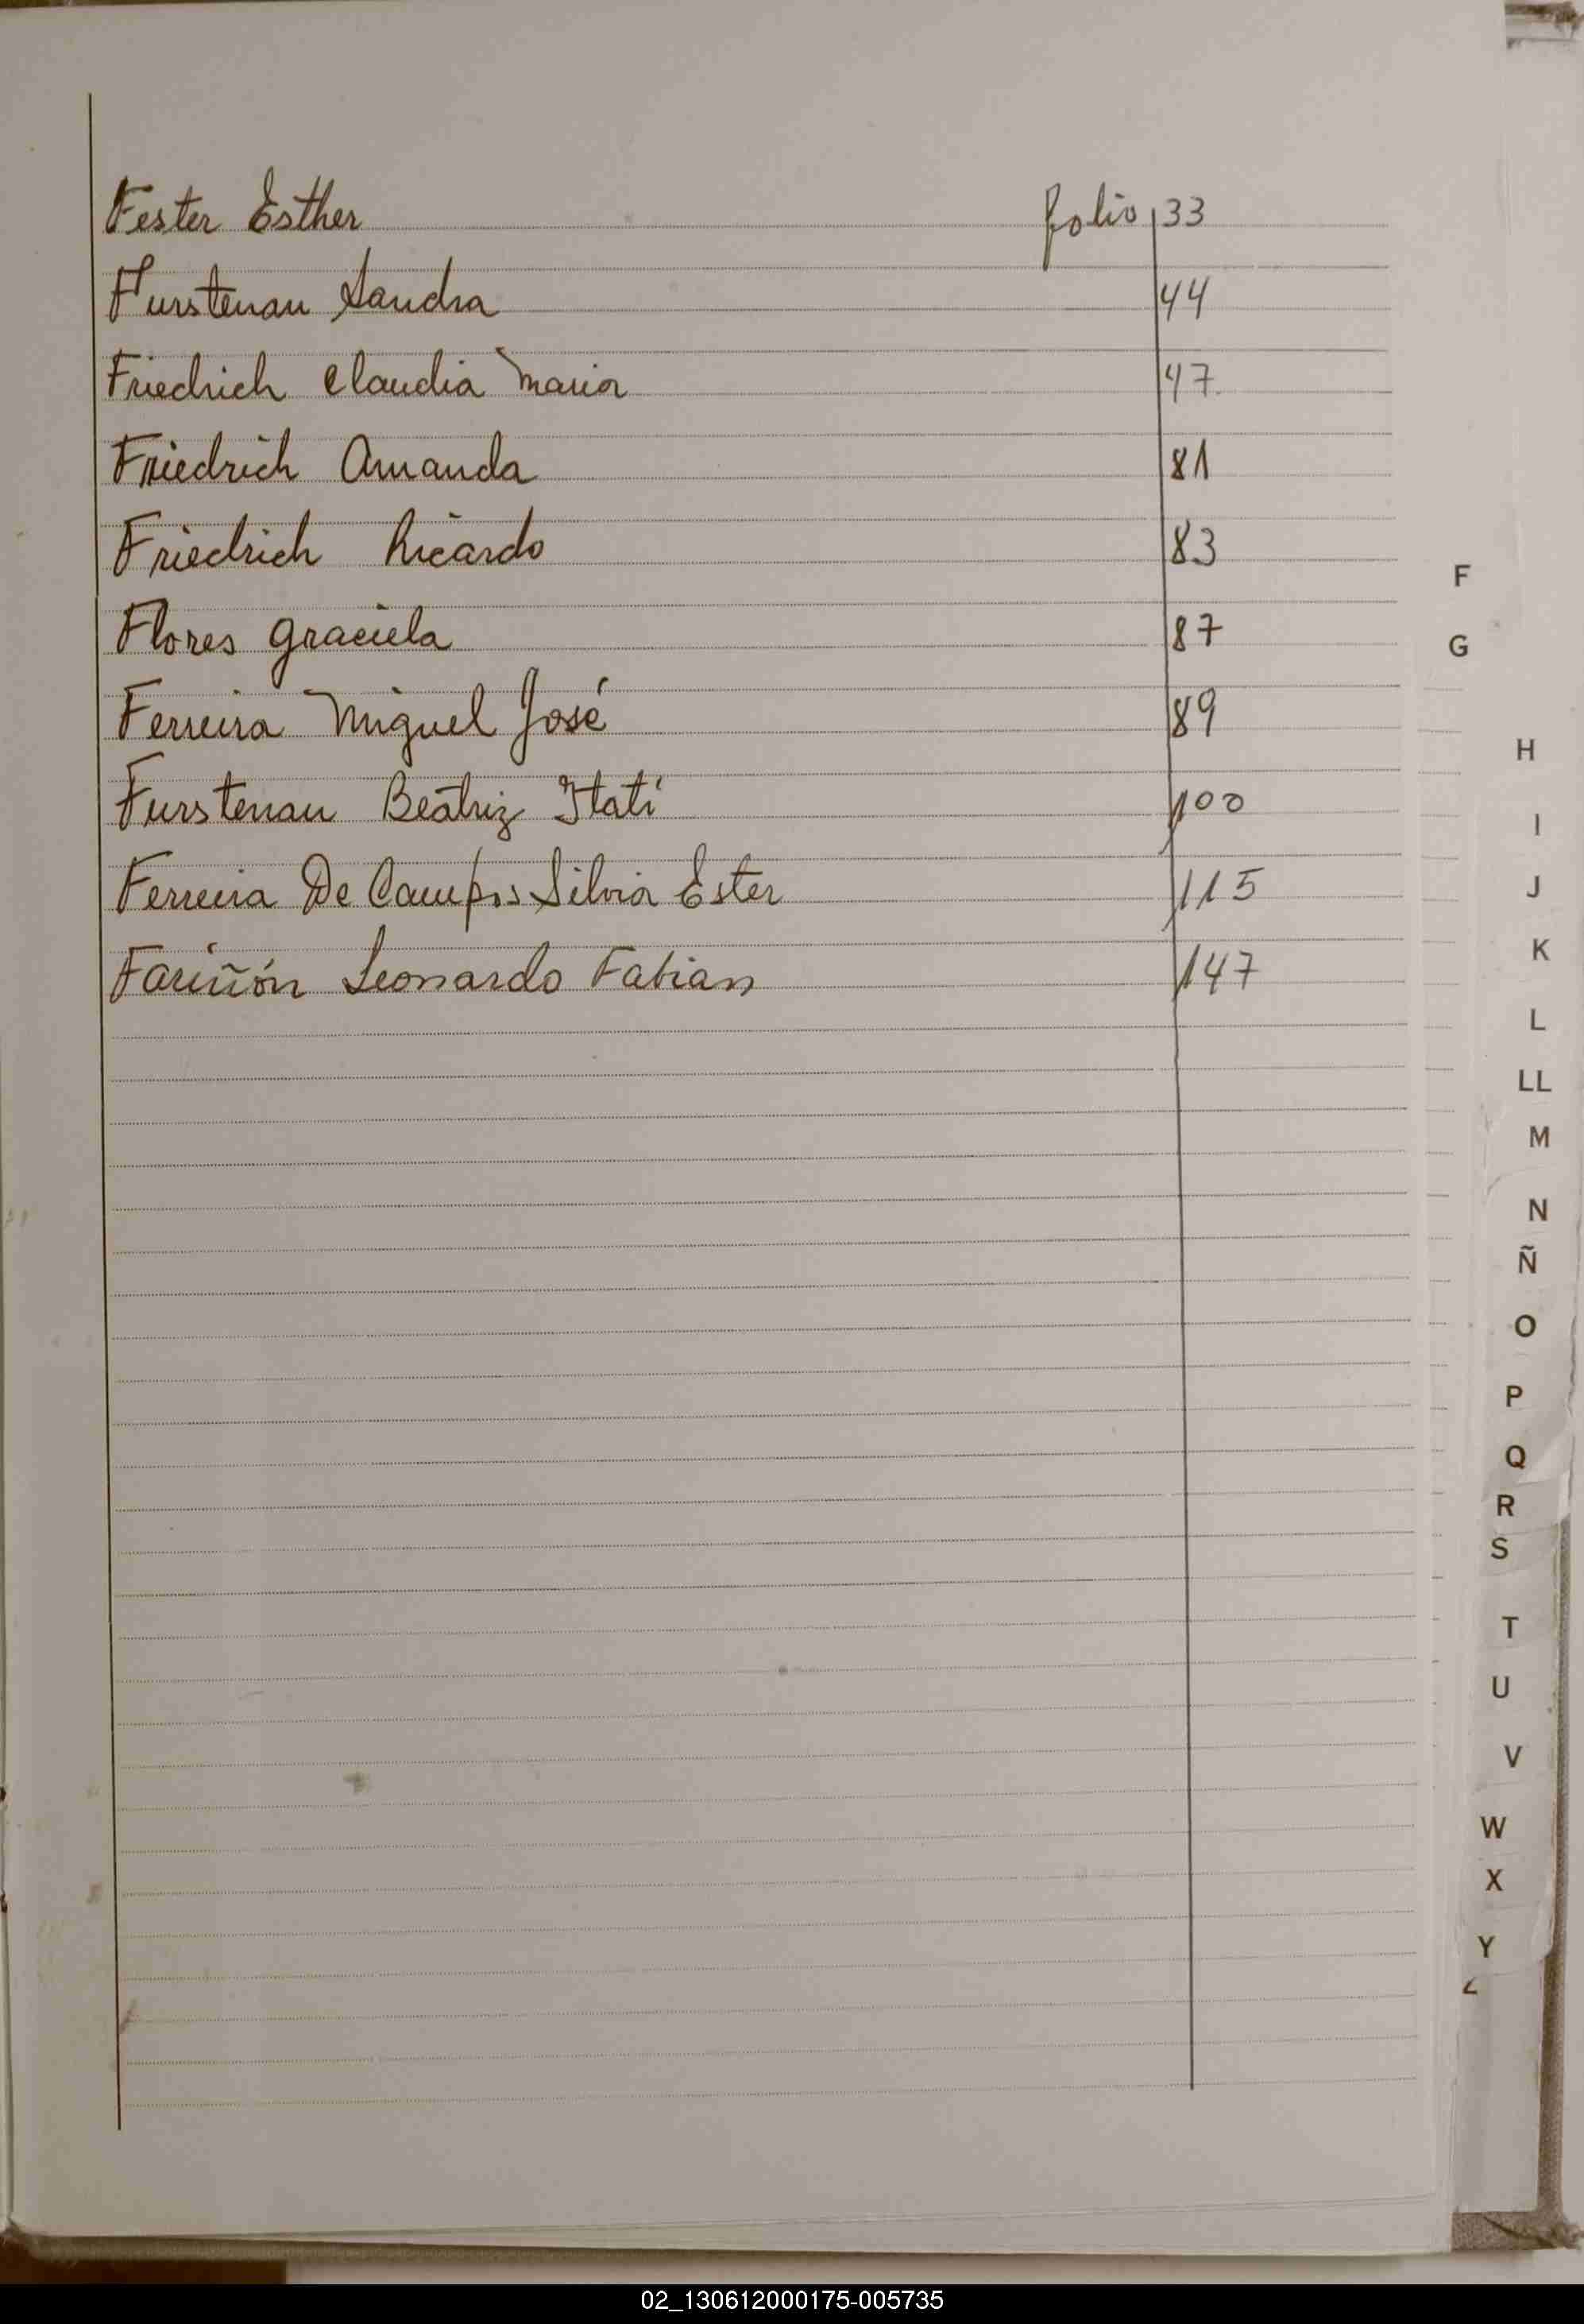 Fester Esther folio 33
Furstenau Sandra 44
Friedrich Claudia Maria 47
Friedrich Amanda 81
Friedrich Ricardo 83
Flores Graciela 87
Ferreira Miguel José 89
Furstenau Beatriz Itatí 100
Ferreira De Campos Silvia Ester 115
Fariñón Leonardo Fabian 147
F
G
H
I
J
K
L
LL
M
N
Ñ
O
P
Q
R
S
T
U
V
W
X
Y
Z
02_130612000175-005735